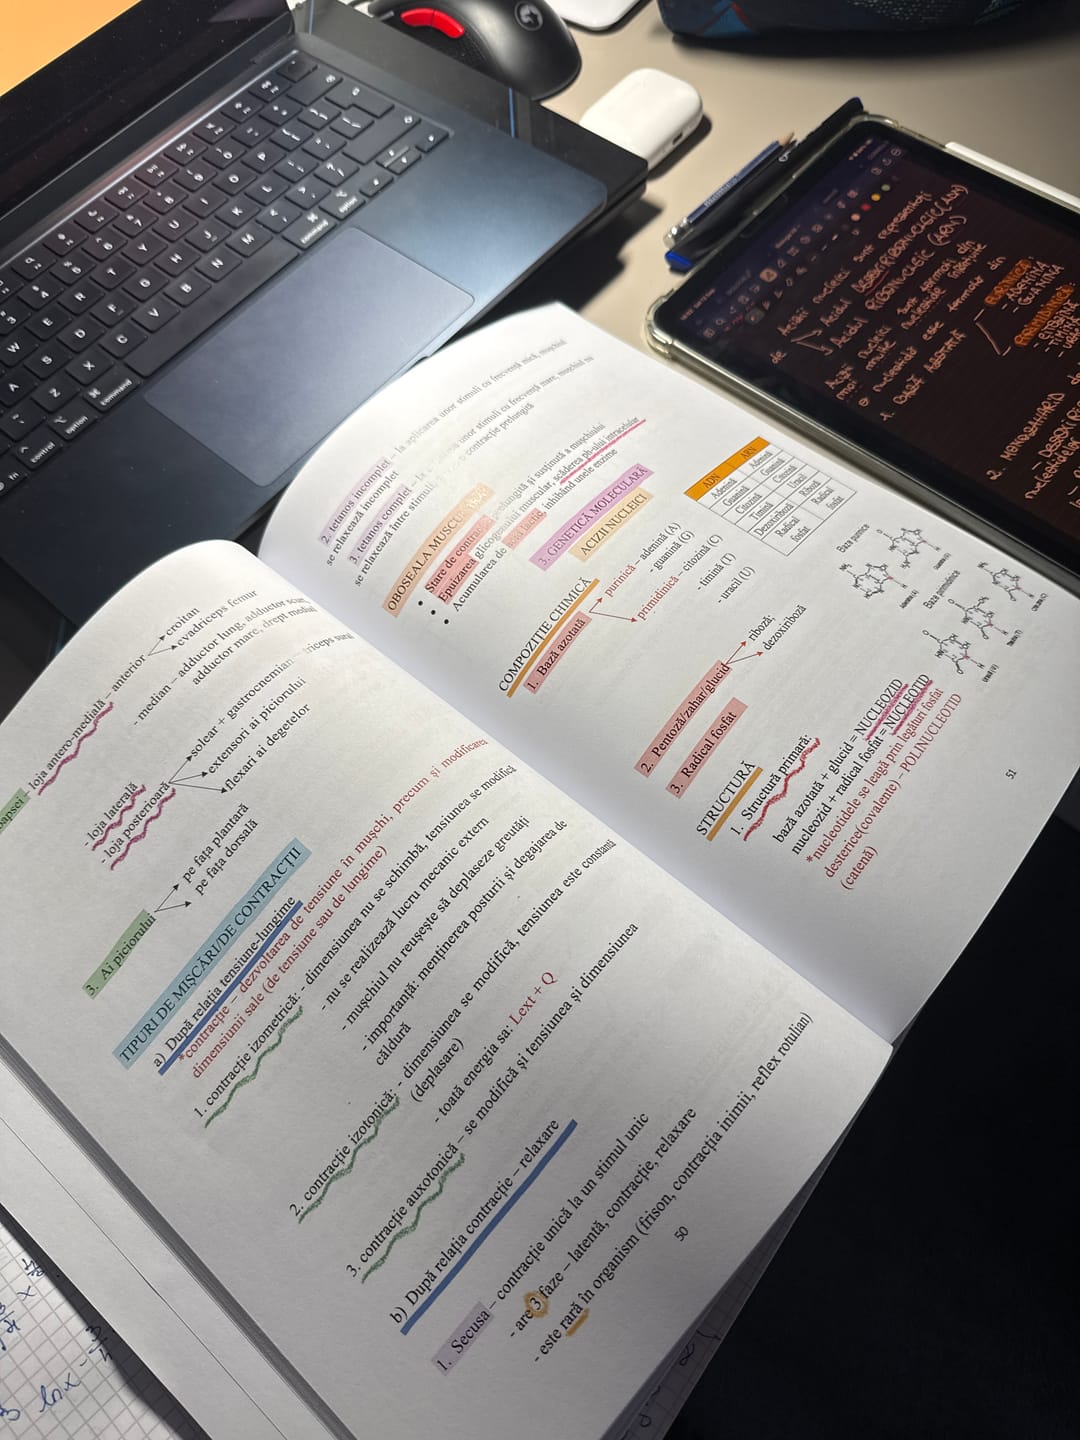 coapsei - loja antero-medială - anterior
croitan
cvadriceps femur
- median - adductor lung, adductor scurt
adductor mare, drept medial
- loja laterală
- loja posterioară
solear + gastrocnemian - triceps sural
extensori ai piciorului
flexari ai degetelor
3. Ai piciorului
pe fața plantară
pe fața dorsală
TIPURI DE MIȘCĂRI/DE CONTRACȚII
a) După relația tensiune-lungime
*contracție – dezvoltarea de tensiune în mușchi, precum și modificarea
dimensiunii sale (de tensiune sau de lungime)
1. contracție izometrică: - dimensiunea nu se schimbă, tensiunea se modifică
- nu se realizează lucru mecanic extern
- mușchiul nu reușește să deplaseze greutăți
- importanță: menținerea posturii și degajarea de
căldură
2. contracție izotonică: - dimensiunea se modifică, tensiunea este constantă
(deplasare)
- toată energia sa: Lext + Q
3. contracție auxotonică – se modifică și tensiunea și dimensiunea
b) După relația contracție – relaxare
1. Secusa – contracție unică la un stimul unic
- are 3 faze – latentă, contracție, relaxare
- este rară în organism (frison, contracția inimii, reflex rotulian)
50
2. tetanos incomplet – la aplicarea unor stimuli cu frecvență mică, mușchiul
se relaxează incomplet
3. tetanos complet – la unor stimuli cu frecvență mare, mușchiul nu
se relaxează între stimuli, contracție prelungită
OBOSEALA MUSCULARĂ
• Stare de contracție prelungită și susținută a mușchiului
• Epuizarea glicogenului muscular, scăderea ph-ului intracelular
• Acumularea de acid lactic, inhibând unele enzime
3. GENETICĂ MOLECULARĂ
ACIZII NUCLEICI
COMPOZIȚIE CHIMICĂ
1. Bază azotată
purinică – adenină (A)
- guanină (G)
primidinică – citozină (C)
- timină (T)
- uracil (U)
2. Pentoză/zahar/glucid
riboză;
dezoxiriboză
3. Radical fosfat
ADN ARN
Adenină Adenină
Guanină Guanină
Citozină Citozină
Timină Uracil
Dezoxiriboză Riboză
Radical fosfat Radical fosfat
Baze purinice
Baze pirimidinice
STRUCTURĂ
1. Structură primară:
bază azotată + glucid = NUCLEOZID
nucleozid + radical fosfat = NUCLEOTID
*nucleotidele se leagă prin legături fosfat
desterice(covalente) – POLINUCLEOTID
(catenă)
51
Acizii nucleici sunt reprezentați
de
Acidul DEZOXIRIBONUCLEIC (ADN)
Acidul RIBONUCLEIC (ARN)
Acizii nucleici sunt formați din
mai multe nucleotide
nucleotidă este formată din
1. O BAZĂ AZOTATĂ
- ADENINA
- GUANINA
- TIMINA
control
option
command
command
option
ln x